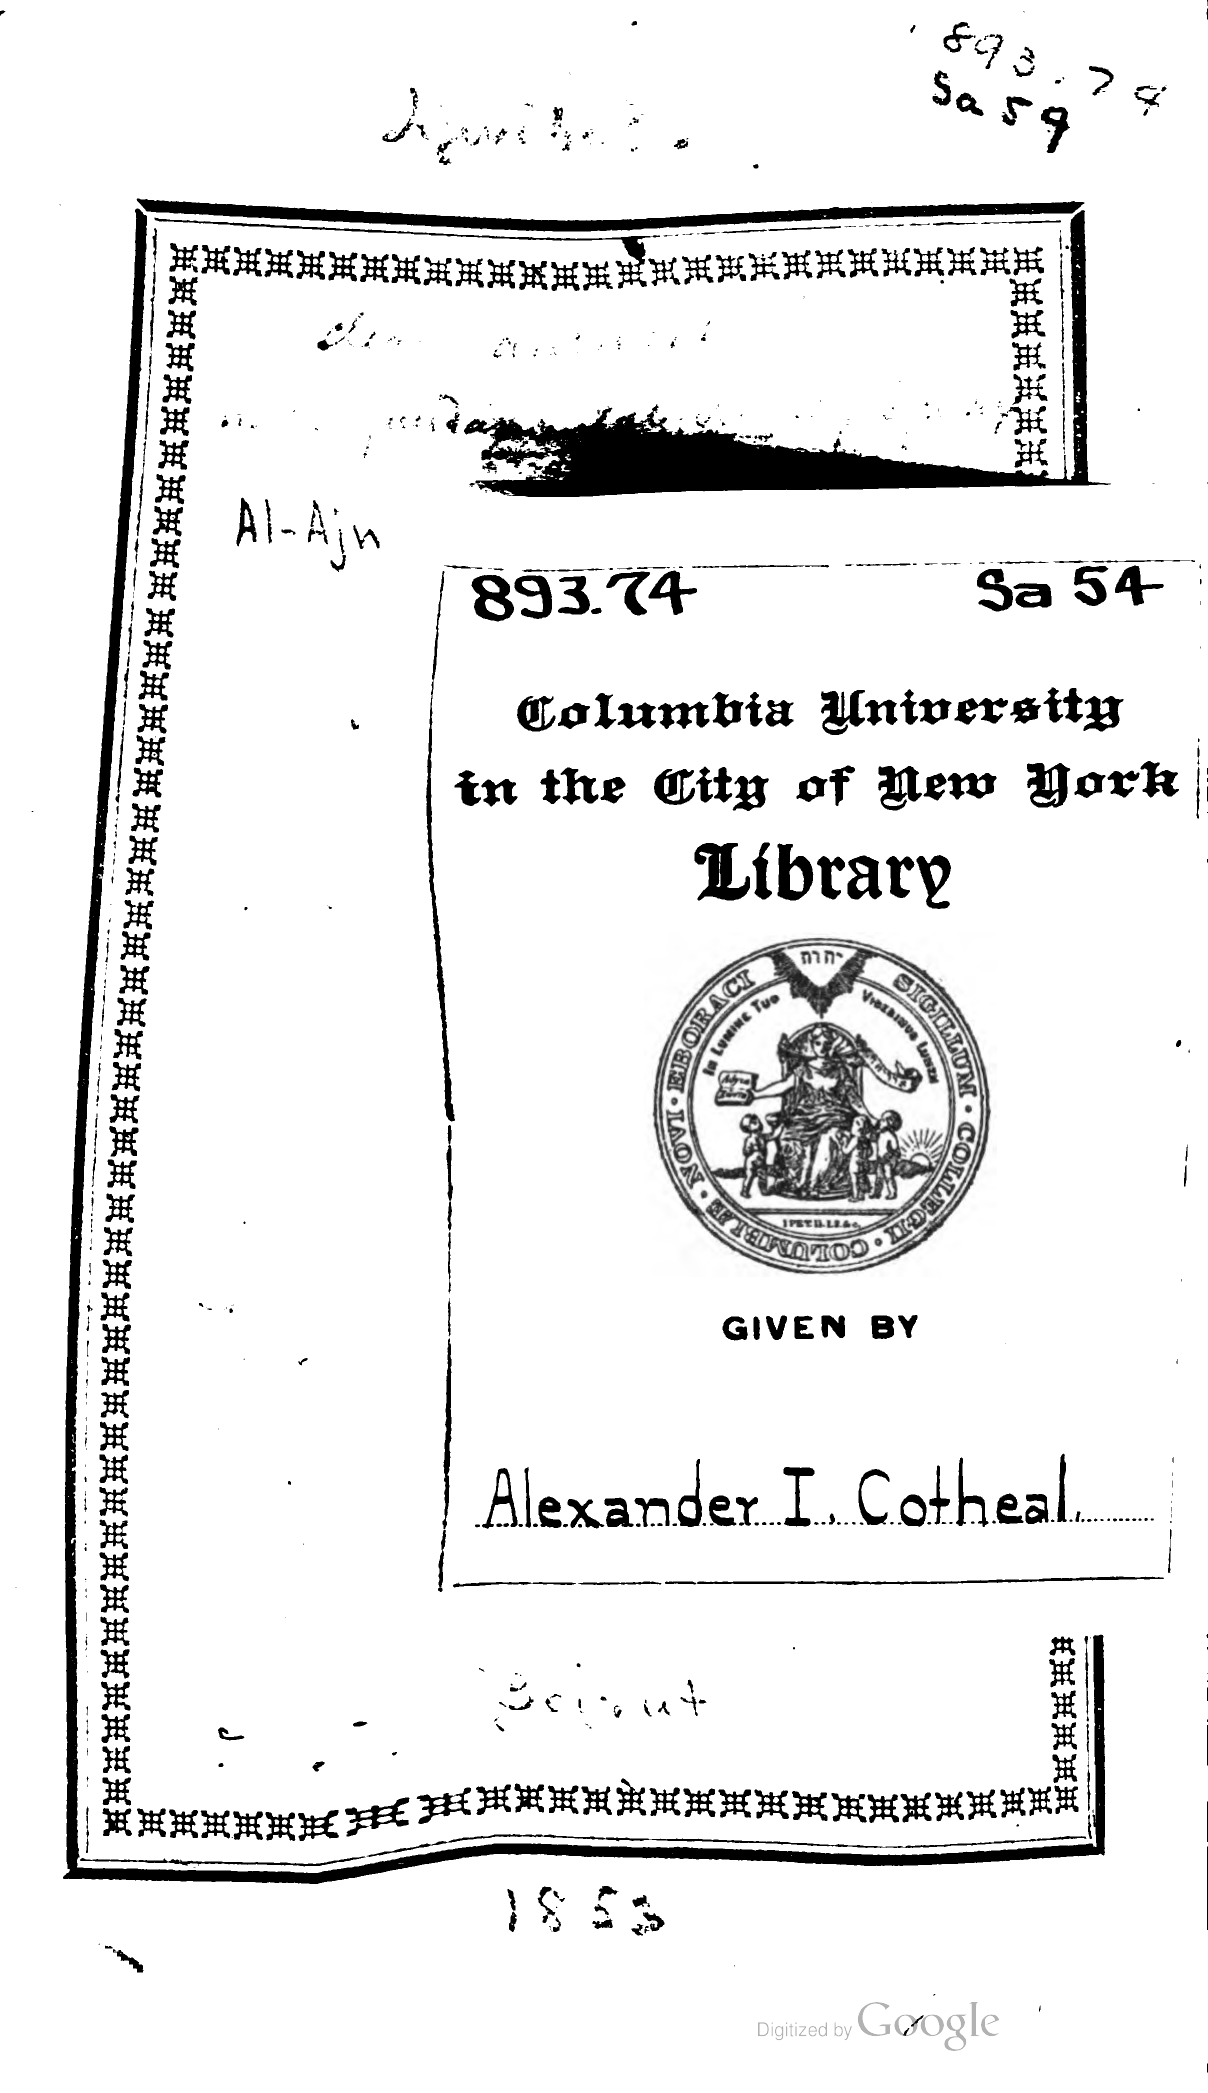 893.74
Sa 54
Al-Ajn
893.74 Sa 54
Columbia University
in the City of New York
Library
יהוה
SIGILLUM · COLLEGII · COLUMBIÆ · NOVI · EBORACI
IN LUMINE TUO VIDEBIMUS LUMEN
I PET II. I. 2. &c.
GIVEN BY
Alexander I. Cotheal.
Beirut
1853
Digitized by Google